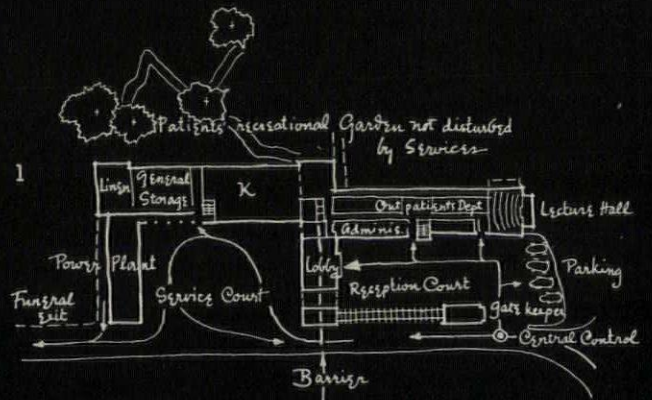 Patients' recreational Garden not disturbed
by Services
1
Linen
General
Storage
K
Out patients Dept
Lecture Hall
Adminis.
Power Plant
Lobby
Service Court
Reception Court
Parking
Funeral
Exit
gate keeper
Central Control
Barrier